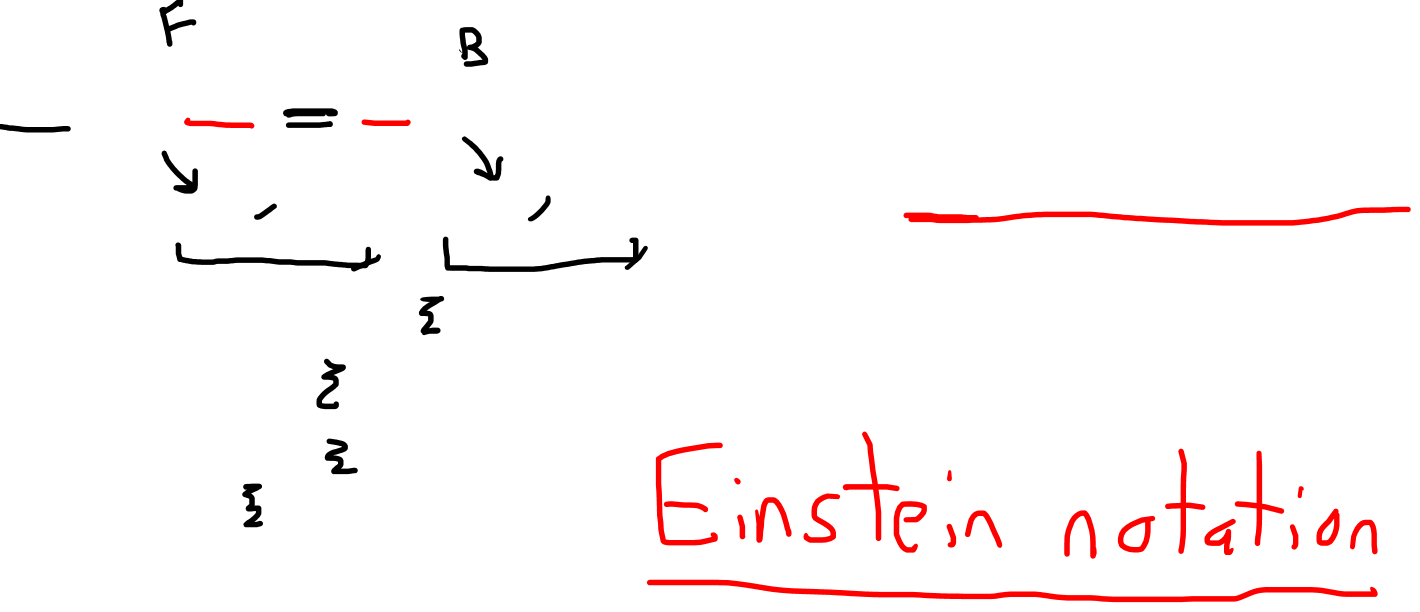 F
B
=
Σ
Σ
Σ
Σ
Einstein notation